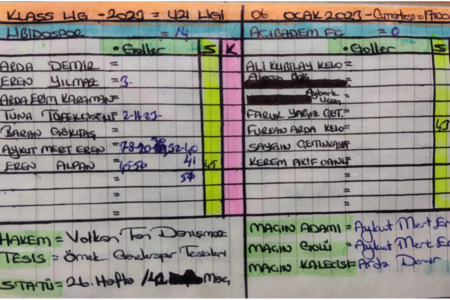 KLASS LİG - 2022 - U21 LİGİ
06 OCAK 2023 - Cumartesi - 17:00
LİBİDOSPOR = 14
ACIBADEM FC = 0
• Goller S K
• Goller S
ARDA DEMİR =
EREN YILMAZ = 3-
ARDA ERİM KARAMAN =
TUNA = 2-11-23-
BARAN GÖKTAŞ =
AYKUT MERT EREN = 7-8-20- 32-40
41
EREN ALPAN = 45-50 45
50
ALİ KUBİLAY
Aybars
FARUK YAĞIZ ÇET.
FURKAN ARDA 43
SAYGIN ÇETİNKAYA
KEREM AKİF
HAKEM = Volkan Tan Danışmaz
TESİS = Örnek Tesisleri
STATÜ = 26. Hafta / 42 Maç
MAÇIN ADAMI = Aykut Mert Er
MAÇIN GOLÜ = Aykut Mert E
MAÇIN KALECİSİ = Arda Demir